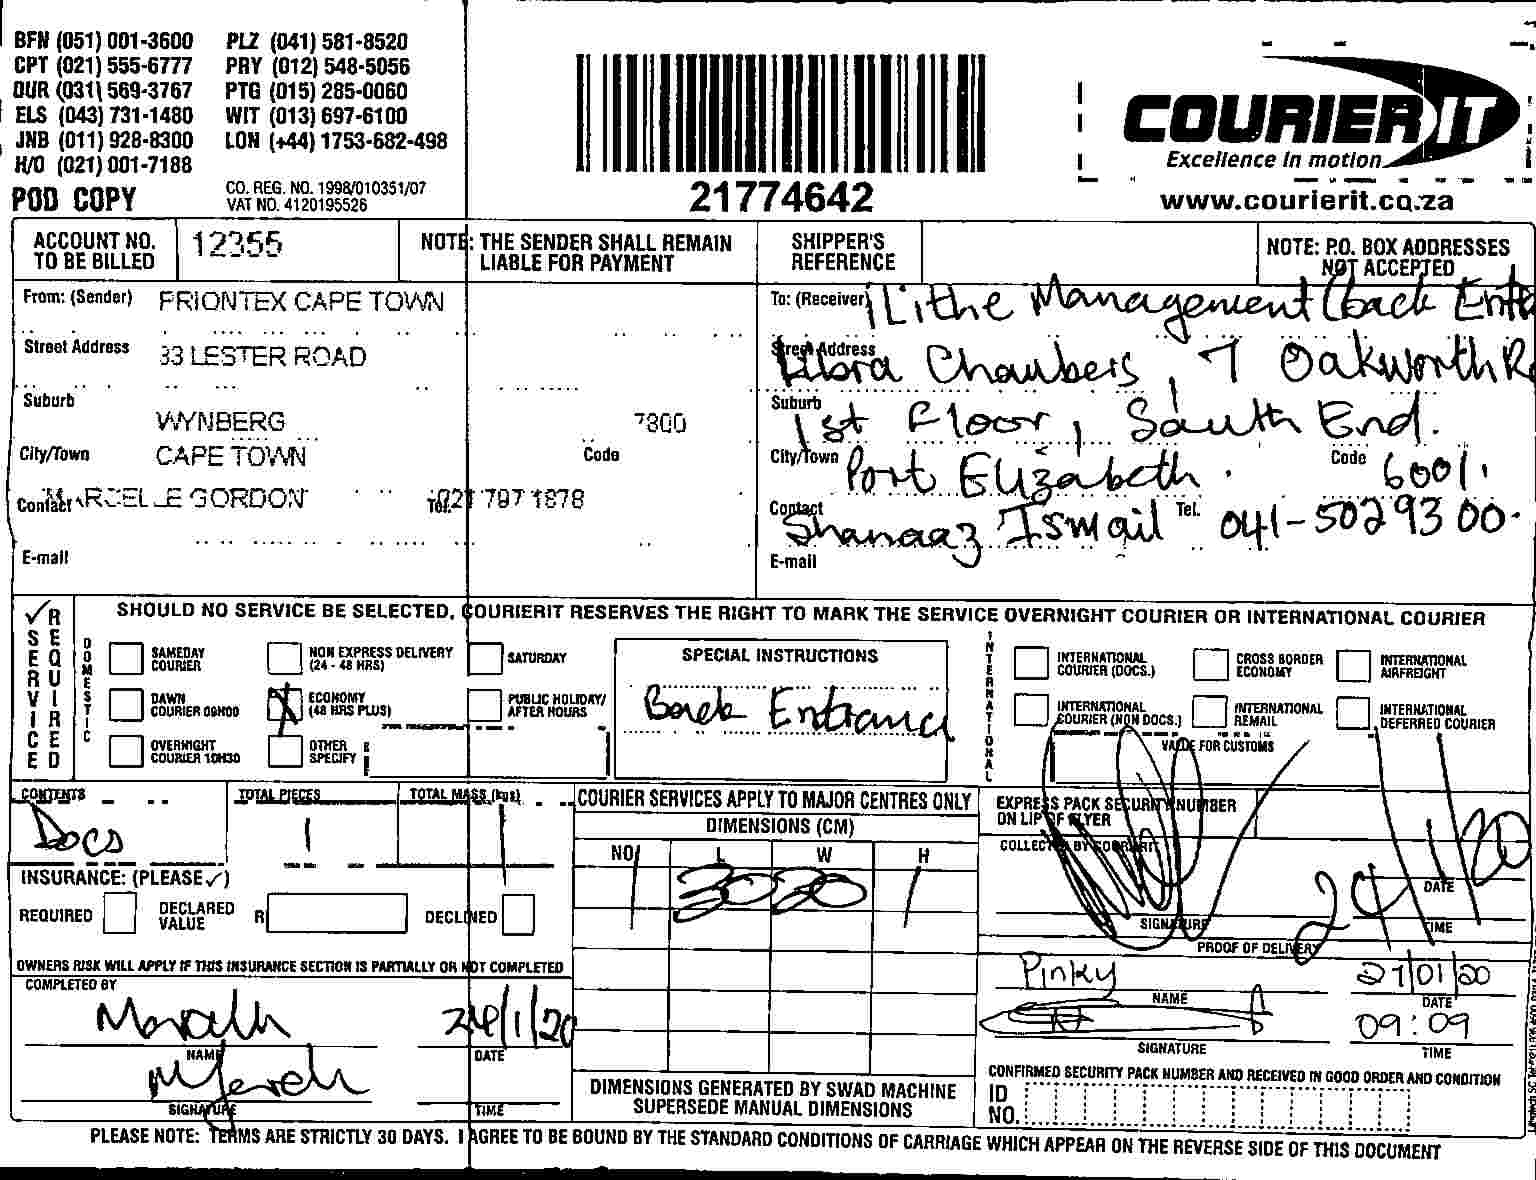 BFN (051) 001-3600 PLZ (041) 581-8520
CPT (021) 555-6777 PRY (012) 548-5056
DUR (031) 569-3767 PTG (015) 285-0060
ELS (043) 731-1480 WIT (013) 697-6100
JNB (011) 928-8300 LON (+44) 1753-682-498
H/O (021) 001-7188
POD COPY
CO. REG. NO. 1998/010351/07
VAT NO. 4120195526
21774642
COURIER IT
Excellence in motion
www.courierit.co.za
ACCOUNT NO. TO BE BILLED 12355
NOTE: THE SENDER SHALL REMAIN LIABLE FOR PAYMENT
SHIPPER'S REFERENCE
NOTE: P.O. BOX ADDRESSES NOT ACCEPTED
From: (Sender) PRIONTEX CAPE TOWN
Street Address 33 LESTER ROAD
Suburb WYNBERG 7800
City/Town CAPE TOWN Code
Contact GORDON Tel. 021 797 1878
E-mail
To: (Receiver) iLithe Management (back
Street Address Libra Chambers, 7 Oakworth
Suburb 1st Floor, South End.
City/Town Port Elizabeth. Code 6001.
Contact Shanaaz Ismail Tel. 041-5029300.
E-mail
SERVICE REQUIRED
SHOULD NO SERVICE BE SELECTED, COURIERIT RESERVES THE RIGHT TO MARK THE SERVICE OVERNIGHT COURIER OR INTERNATIONAL COURIER
DOMESTIC
SAMEDAY COURIER
NON EXPRESS DELIVERY (24 - 48 HRS)
SATURDAY
DAWN COURIER 09H00
ECONOMY (48 HRS PLUS)
PUBLIC HOLIDAY/ AFTER HOURS
OVERNIGHT COURIER 10H30
OTHER SPECIFY
SPECIAL INSTRUCTIONS
Back Entrance
INTERNATIONAL
INTERNATIONAL COURIER (DOCS.)
CROSS BORDER ECONOMY
INTERNATIONAL AIRFREIGHT
INTERNATIONAL COURIER (NON DOCS.)
INTERNATIONAL REMAIL
INTERNATIONAL DEFERRED COURIER
VALUE FOR CUSTOMS
CONTENTS Docs
TOTAL PIECES 1
TOTAL MASS (kgs) 1
INSURANCE: (PLEASE ✓)
REQUIRED DECLARED VALUE R DECLINED
OWNERS RISK WILL APPLY IF THIS INSURANCE SECTION IS PARTIALLY OR NOT COMPLETED
COMPLETED BY
24/1/20
NAME DATE
SIGNATURE TIME
COURIER SERVICES APPLY TO MAJOR CENTRES ONLY
DIMENSIONS (CM)
NO L W H
1 30 20 1
DIMENSIONS GENERATED BY SWAD MACHINE SUPERSEDE MANUAL DIMENSIONS
EXPRESS PACK SECURITY NUMBER ON LIP OF FLYER
COLLECTED BY COURIERIT
24/1/20
DATE
SIGNATURE TIME
PROOF OF DELIVERY
Pinky 27/01/20
NAME DATE
09:09
SIGNATURE TIME
CONFIRMED SECURITY PACK NUMBER AND RECEIVED IN GOOD ORDER AND CONDITION
ID NO.
PLEASE NOTE: TERMS ARE STRICTLY 30 DAYS. I AGREE TO BE BOUND BY THE STANDARD CONDITIONS OF CARRIAGE WHICH APPEAR ON THE REVERSE SIDE OF THIS DOCUMENT